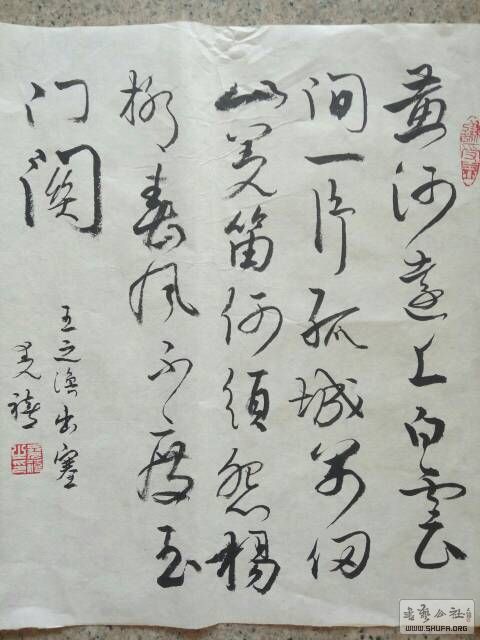 黄河遠上白雲
间一片孤城万仞
山羌笛何須怨楊
柳春风不度玉
门関
王之渙出塞
書藝公社
WWW.SHUFA.ORG